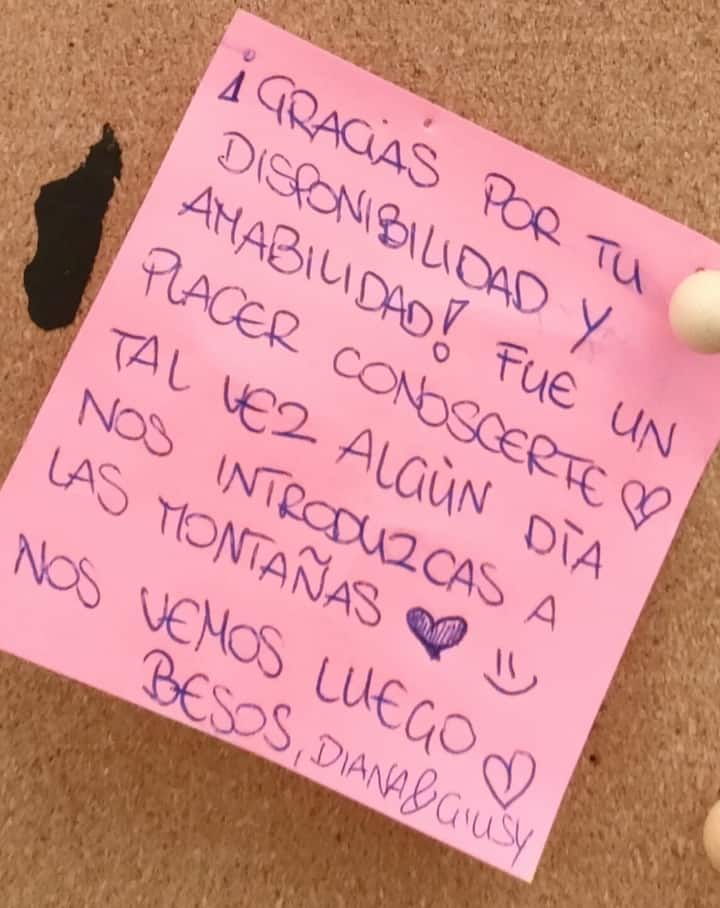 ¡GRACIAS POR TU
DISPONIBILIDAD Y
AMABILIDAD! FUE UN
PLACER CONOSCERTE ♡
TAL VEZ ALGÙN DÍA
NOS INTRODUZCAS A
LAS MONTAÑAS ♥ =)
NOS VEMOS LUEGO ♡
BESOS, DIANA&GIUSY